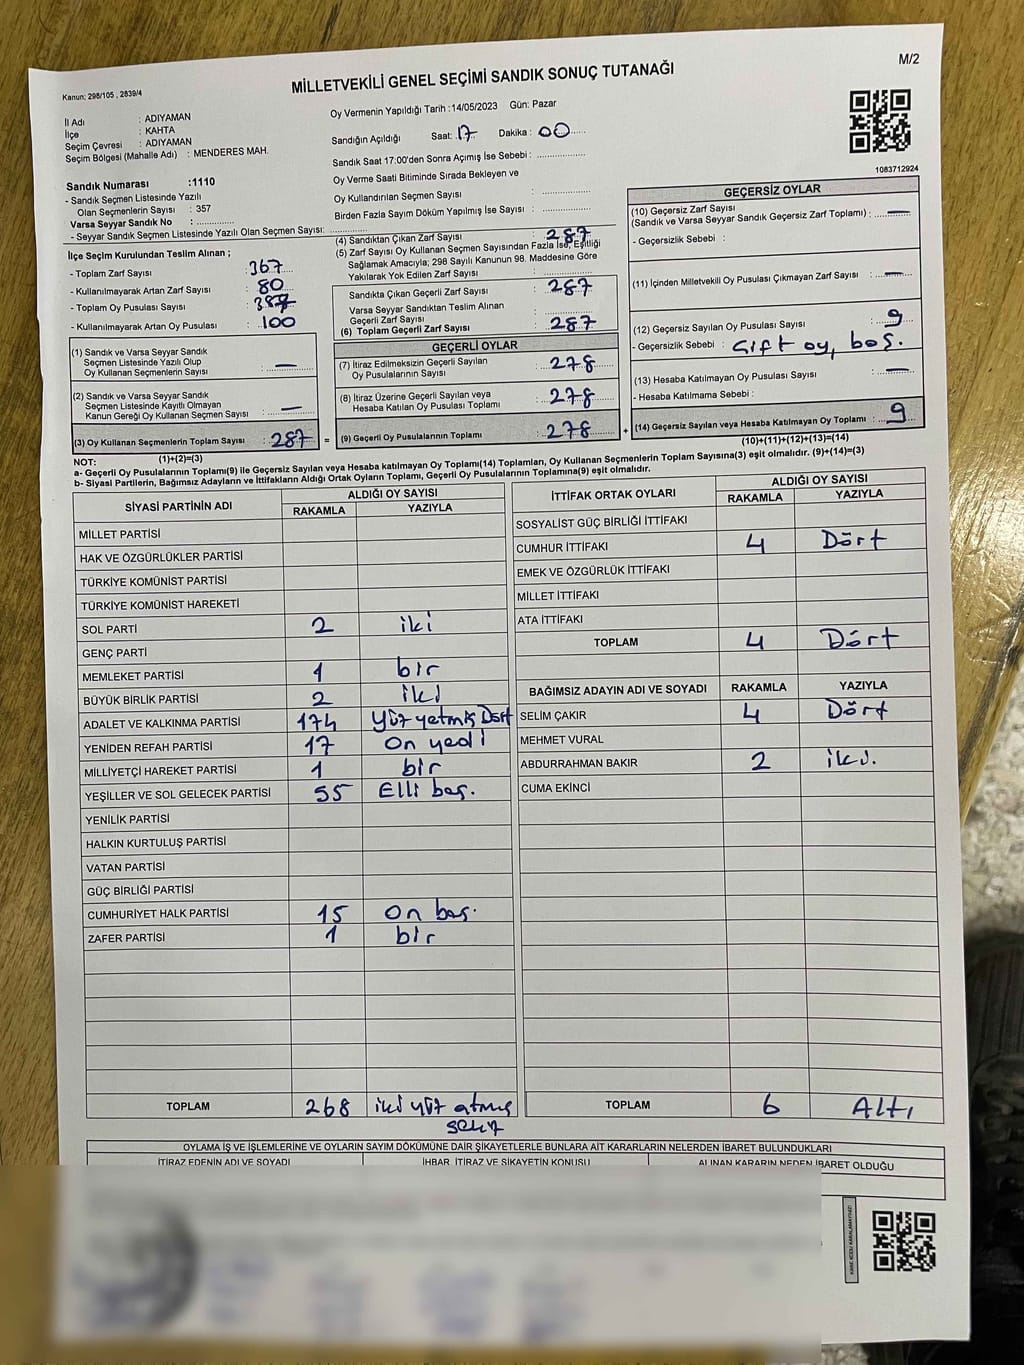 M/2
MİLLETVEKİLİ GENEL SEÇİMİ SANDIK SONUÇ TUTANAĞI
Kanun; 298/105 , 2839/4
İl Adı : ADIYAMAN
İlçe : KAHTA
Seçim Çevresi : ADIYAMAN
Seçim Bölgesi (Mahalle Adı) : MENDERES MAH.
Oy Vermenin Yapıldığı Tarih :14/05/2023 Gün: Pazar
Sandığın Açıldığı Saat: 17 Dakika : 00
Sandık Saat 17:00'den Sonra Açımış İse Sebebi :
Oy Verme Saati Bitiminde Sırada Bekleyen ve
Oy Kullandırılan Seçmen Sayısı :
Birden Fazla Sayım Döküm Yapılmış İse Sayısı :
1083712924
Sandık Numarası :1110
- Sandık Seçmen Listesinde Yazılı
Olan Seçmenlerin Sayısı : 357
Varsa Seyyar Sandık No :
- Seyyar Sandık Seçmen Listesinde Yazılı Olan Seçmen Sayısı:
İlçe Seçim Kurulundan Teslim Alınan ;
- Toplam Zarf Sayısı : 367
- Kullanılmayarak Artan Zarf Sayısı : 80
- Toplam Oy Pusulası Sayısı : 387
- Kullanılmayarak Artan Oy Pusulası : 100
(1) Sandık ve Varsa Seyyar Sandık
Seçmen Listesinde Yazılı Olup
Oy Kullanan Seçmenlerin Sayısı : —
(2) Sandık ve Varsa Seyyar Sandık
Seçmen Listesinde Kayıtlı Olmayan
Kanun Gereği Oy Kullanan Seçmen Sayısı : —
(3) Oy Kullanan Seçmenlerin Toplam Sayısı : 287 =
(1)+(2)=(3)
(4) Sandıktan Çıkan Zarf Sayısı : 287
(5) Zarf Sayısı Oy Kullanan Seçmen Sayısından Fazla İse, Eşitliği
Sağlamak Amacıyla; 298 Sayılı Kanunun 98. Maddesine Göre
Yakılarak Yok Edilen Zarf Sayısı :
Sandıkta Çıkan Geçerli Zarf Sayısı : 287
Varsa Seyyar Sandıktan Teslim Alınan
Geçerli Zarf Sayısı :
(6) Toplam Geçerli Zarf Sayısı : 287
GEÇERLİ OYLAR
(7) İtiraz Edilmeksizin Geçerli Sayılan
Oy Pusulalarının Sayısı : 278
(8) İtiraz Üzerine Geçerli Sayılan veya
Hesaba Katılan Oy Pusulası Toplamı : 278
(9) Geçerli Oy Pusulalarının Toplamı : 278 +
GEÇERSİZ OYLAR
(10) Geçersiz Zarf Sayısı
(Sandık ve Varsa Seyyar Sandık Geçersiz Zarf Toplamı) : —
- Geçersizlik Sebebi :
(11) İçinden Milletvekili Oy Pusulası Çıkmayan Zarf Sayısı : —
(12) Geçersiz Sayılan Oy Pusulası Sayısı : 9
- Geçersizlik Sebebi : Çift oy, boş.
(13) Hesaba Katılmayan Oy Pusulası Sayısı : —
- Hesaba Katılmama Sebebi :
(14) Geçersiz Sayılan veya Hesaba Katılmayan Oy Toplamı : 9
(10)+(11)+(12)+(13)=(14)
NOT:
a- Geçerli Oy Pusulalarının Toplamı(9) ile Geçersiz Sayılan veya Hesaba katılmayan Oy Toplamı(14) Toplamları, Oy Kullanan Seçmenlerin Toplam Sayısına(3) eşit olmalıdır. (9)+(14)=(3)
b- Siyasi Partilerin, Bağımsız Adayların ve İttifakların Aldığı Ortak Oyların Toplamı, Geçerli Oy Pusulalarının Toplamına(9) eşit olmalıdır.
SİYASİ PARTİNİN ADI ALDIĞI OY SAYISI
RAKAMLA YAZIYLA
MİLLET PARTİSİ
HAK VE ÖZGÜRLÜKLER PARTİSİ
TÜRKİYE KOMÜNİST PARTİSİ
TÜRKİYE KOMÜNİST HAREKETİ
SOL PARTİ 2 iki
GENÇ PARTİ
MEMLEKET PARTİSİ 1 bir
BÜYÜK BİRLİK PARTİSİ 2 iki
ADALET VE KALKINMA PARTİSİ 174 Yüz yetmiş Dört
YENİDEN REFAH PARTİSİ 17 On yedi
MİLLİYETÇİ HAREKET PARTİSİ 1 bir
YEŞİLLER VE SOL GELECEK PARTİSİ 55 Elli beş.
YENİLİK PARTİSİ
HALKIN KURTULUŞ PARTİSİ
VATAN PARTİSİ
GÜÇ BİRLİĞİ PARTİSİ
CUMHURİYET HALK PARTİSİ 15 On beş.
ZAFER PARTİSİ 1 bir
TOPLAM 268 iki yüz atmış
sekiz
İTTİFAK ORTAK OYLARI ALDIĞI OY SAYISI
RAKAMLA YAZIYLA
SOSYALİST GÜÇ BİRLİĞİ İTTİFAKI
CUMHUR İTTİFAKI 4 Dört
EMEK VE ÖZGÜRLÜK İTTİFAKI
MİLLET İTTİFAKI
ATA İTTİFAKI
TOPLAM 4 Dört
BAĞIMSIZ ADAYIN ADI VE SOYADI RAKAMLA YAZIYLA
SELİM ÇAKIR 4 Dört
MEHMET VURAL
ABDURRAHMAN BAKIR 2 iki.
CUMA EKİNCİ
TOPLAM 6 Altı
OYLAMA İŞ VE İŞLEMLERİNE VE OYLARIN SAYIM DÖKÜMÜNE DAİR ŞİKAYETLERLE BUNLARA AİT KARARLARIN NELERDEN İBARET BULUNDUKLARI
İTİRAZ EDENİN ADI VE SOYADI İHBAR, İTİRAZ VE ŞİKAYETİN KONUSU ALINAN KARARIN NEDEN İBARET OLDUĞU